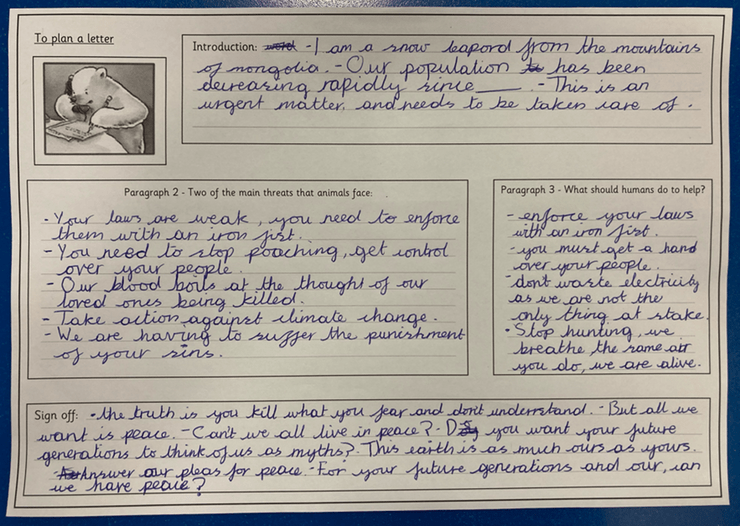 To plan a letter
Introduction: word - I am a snow leapord from the mountains
of mongolia. - Our population has been
decreasing rapidly since ____. - This is an
urgent matter, and needs to be taken care of.
Paragraph 2 - Two of the main threats that animals face:
- Your laws are weak, you need to enforce
them with an iron fist.
- You need to stop poaching, get control
over your people.
- Our blood boils at the thought of our
loved ones being killed.
- Take action against climate change.
- We are having to suffer the punishment
of your sins.
Paragraph 3 - What should humans do to help?
- enforce your laws
with an iron fist.
- you must get a hand
over your people.
- dont waste electricity
as we are not the
only thing at stake.
- Stop hunting, we
breathe the same air
you do, we are alive.
Sign off: - the truth is you kill what you fear and don't understand. - But all we
want is peace. - Can't we all live in peace? - D you want your future
generations to think of us as myths? This earth is as much ours as yours.
Answer our pleas for peace. - For your future generations and our, can
we have peace?